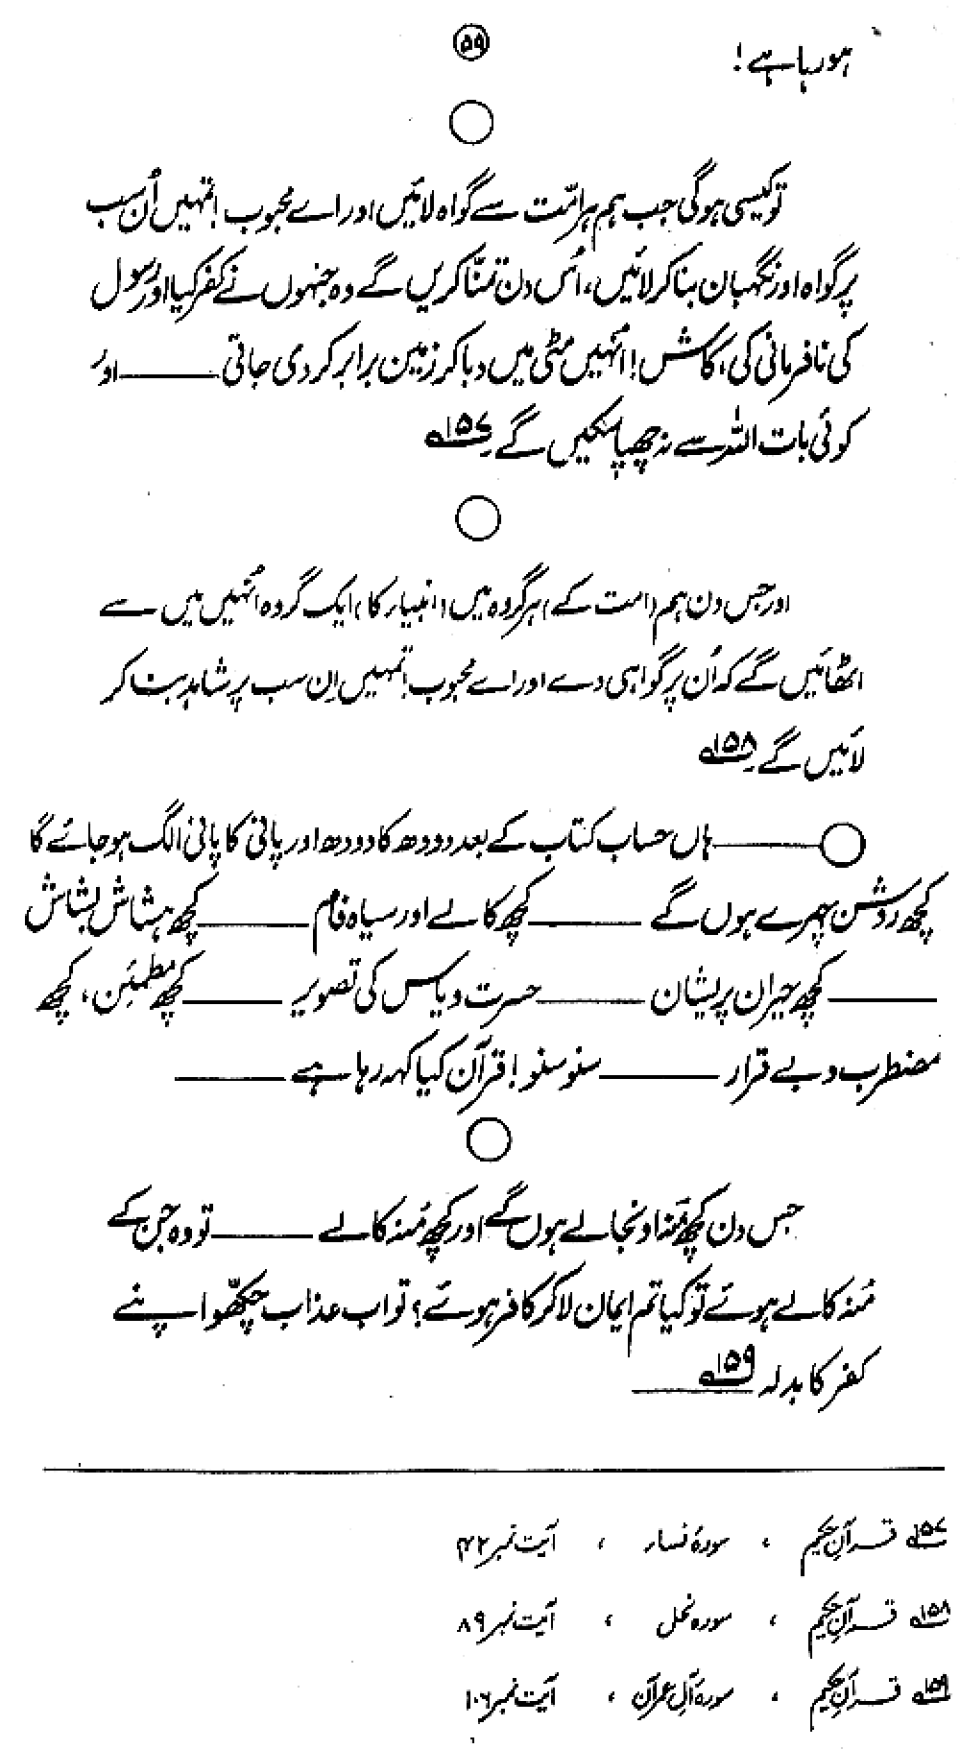 ۵۹
ہو رہا ہے!
تو کیسی ہوگی جب ہم ہر امّت سے گواہ لائیں اور اے محبوب! تمہیں اُن سب
پر گواہ اور نگہبان بنا کر لائیں، اُس دن تمنّا کریں گے وہ جنہوں نے کفر کیا اور رسول
کی نافرمانی کی، کاش! انہیں مٹی میں دبا کر زمین برابر کر دی جاتی ——— اور
کوئی بات اللہ سے نہ چھپا سکیں گے۔ ۱۵۷
اور جس دن ہم (امت کے) ہر گروہ میں (انبیاء کا) ایک گروہ اُنہیں میں سے
اٹھائیں گے کہ اُن پر گواہی دے اور اے محبوب! تمہیں اِن سب پر شاہد بنا کر
لائیں گے۔ ۱۵۸
——— ہاں حساب کتاب کے بعد دودھ کا دودھ اور پانی کا پانی الگ ہو جائے گا
کچھ روشن چہرے ہوں گے ——— کچھ کالے اور سیاہ فام ——— کچھ ہشاش بشاش
——— کچھ حیران پریشان ——— حسرت و یاس کی تصویر ——— کچھ مطمئن، کچھ
مضطرب و بے قرار ——— سنو سنو! قرآن کیا کہہ رہا ہے ———
جس دن کچھ مُنہ اونجالے ہوں گے اور کچھ مُنہ کالے ——— تو وہ جن کے
مُنہ کالے ہوئے تو کیا تم ایمان لا کر کافر ہوئے؟ تو اب عذاب چکھّو اپنے
کفر کا بدلہ ۱۵۹ ———
۱۵۷ قرآن حکیم ، سورۂ نساء ، آیت نمبر ۴۲
۱۵۸ قرآن حکیم ، سورہ نحل ، آیت نمبر ۸۹
۱۵۹ قرآن حکیم ، سورۂ آلِ عمران ، آیت نمبر ۱۰۶